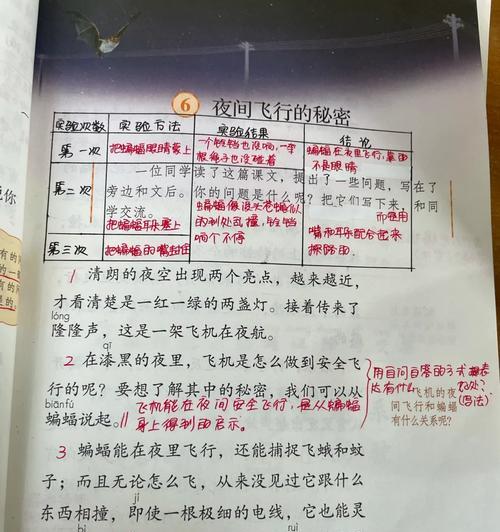 6 夜间飞行的秘密
实验次数 实验方法 实验结果 结论
第一次 把蝙蝠眼睛蒙上 一个铃铛也没响,一
根绳子也没碰着 蝙蝠在夜里飞行,靠的
不是眼睛
一位同学读了这篇课文,提出了一些问题,写在了
第二次
旁边和文后。你的问题是什么呢?把它们写下来,和同
学交流。
把蝙蝠耳朵塞上 蝙蝠像没头苍蝇似
的到处乱撞,铃铛
响个不停 而是用
嘴和耳朵配合起来
探路的
第三次 把蝙蝠的嘴封住
1 清朗的夜空出现两个亮点,越来越近,
才看清楚是一红一绿的两盏灯。接着传来了
lóng
隆隆声,这是一架飞机在夜航。
qī
2 在漆黑的夜里,飞机是怎么做到安全飞
行的呢?要想了解其中的秘密,我们可以从
biānfú
蝙蝠说起。 飞机能在夜间安全飞行,是从蝙蝠
身上得到的启示。
用自问自答的方式
达有什么 好处?
(写法)
飞机的夜
间飞行和蝙蝠
有什么关系呢?
3 蝙蝠能在夜里飞行,还能捕捉飞蛾和蚊
子;而且无论怎么飞,从来没见过它跟什么
jí
东西相撞,即使一根极细的电线,它也能灵